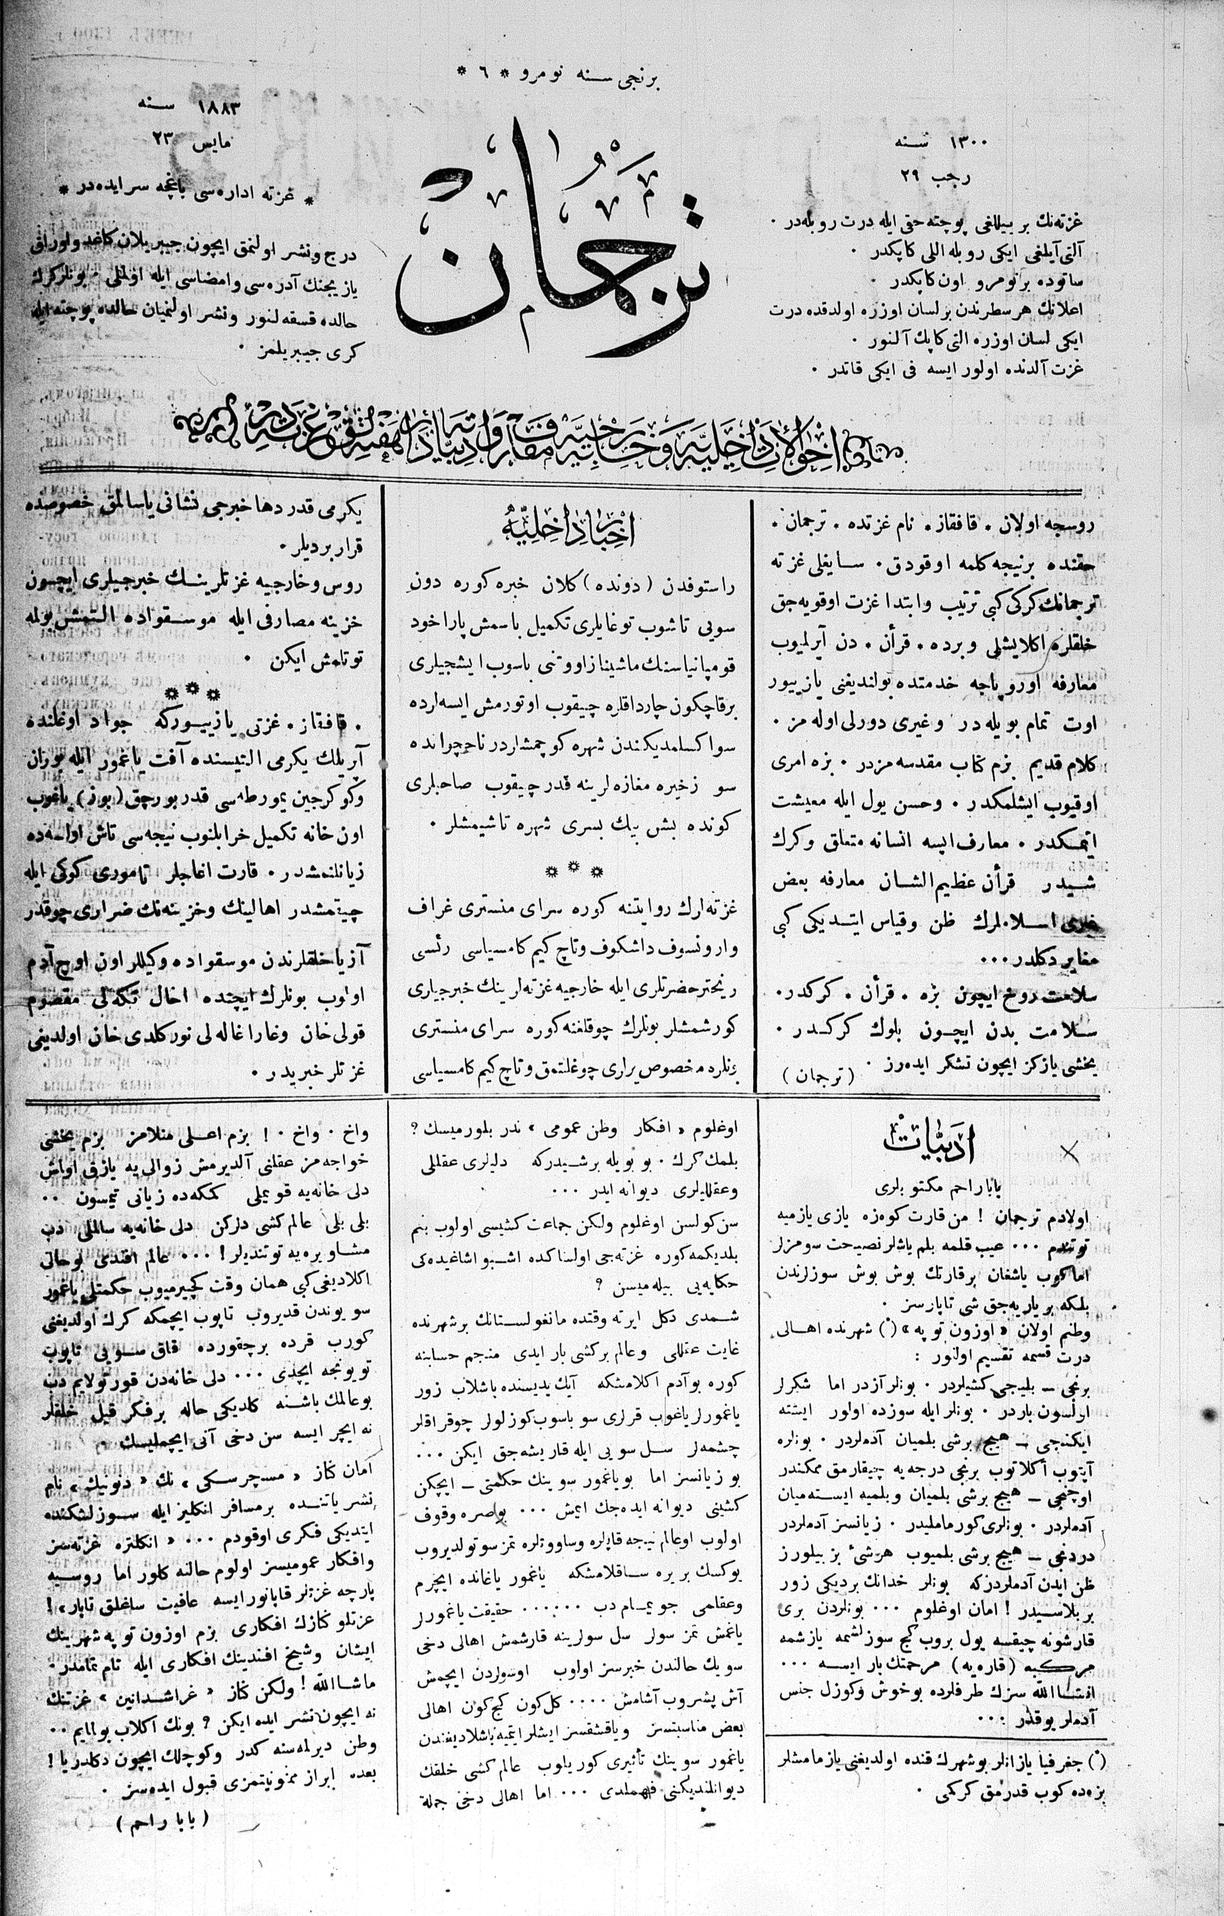 برنجی سنه نومرو * ٦ *
١٣٠٠ سنه
رجب ٢٩
غزته‌نك بر ییللغی پوچته حقی ایله درت روبله‌در ٠
آلتی آیلغی ایکی روبله اللی کاپکدر ٠
ساتوده بر نومرو اون کاپکدر ٠
اعلانك هر سطرندن بر لسان اوزره اولدقده درت
ایکی لسان اوزره التی کاپك آلنور ٠
غزت آلدنده اولور ایسه فی ایکی قاتدر ٠
ترجمان
١٨٨٣ سنه
مایس ٢٣
* غزته اداره‌سی باغچه سرایده‌در *
درج و نشر اولنمق ایچون جیبریلان کاغد و اوراق
یازیجینك آدره‌سی و امضاسی ایله اولملی ٠ بونلر کرك
حالده قسقه‌لنور و نشر اولنمیان حالده پوچته ایله
کری جیبریلمز ٠
روسجه اولان ٠ قافقاز ٠ نام غزتده ٠ ترجمان ٠
حقنده برنیجه کلمه اوقودق ٠ سایغلی غزته
ترجمانك کرکی کبی ترتیب و ابتدا غزت اوقویه‌جق
خلقلره اکلایشلی و برده ٠ قرأن ٠ دن آیرلمیوب
معارفه اوروپاچه خدمتده بولندیغنی یازییور
اوت تمام بویله‌در و غیری دورلی اوله‌مز ٠
کلام قدیم بزم کتاب مقدسه‌مزدر ٠ بزه امری
اوقیوب ایشلمکدر ٠ و حسن یول ایله معیشت
اتمکدر ٠ معارف ایسه انسانه متعلق و کرك
شیدر قرأن عظیم الشان معارفه بعض
اسلاملرك ظن و قیاس ایتدیکی کبی
مغایر دکلدر...
سلامت روح ایچون بزه ٠ قرأن ٠ کرکدر ٠
سلامت بدن ایچون بلوك کرکدر ٠
یخشی یازکز ایچون تشکر ایده‌رز ٠
(ترجمان)
اخبار داخلیه
راستوفدن (دونده) کلان خبره کوره دون
سویی تاشوب توغایلری تکمیل باسمش پاراخود
قومپانیاسنك ماشینا زاووتنی باسوب ایشجیلری
برقاچکون چارداقلره چیقوب اوتورمش ایسه‌لرده
سو اکسلمدیکندن شهره کوچمشلردر ناحچوانده
سو زخیره مغازه‌لرینه قدر چیقوب صاحبلری
کونده بش بیك بسری شهره تاشیمشلر ٠
* * *
غزته‌لرك روایتنه کوره سرای منستری غراف
وارونسوف داشکوف و تاج کیم کامسیاسی رئسی
ریختر حضرتلری ایله خارجیه غزته‌لرینك خبرجیلری
کورشمشلر بونلرك چوقلغنه کوره سرای منستری
بونلره مخصوص یرلری چوغلتمق و تاج کیم کامسیاسی
یکرمی قدر دها خبرجی نشانی یاسالمق خصوصنده
قرار بردیلر ٠
روس و خارجیه غزتلرینك خبرجیلری ایچون
خزینه مصارفی ایله موسقواده التمش بولمه
توتلمش ایکن ٠
* * *
٠ قافقاز ٠ غزتی یازییورکه جواد اوغلنده
آپریلك یکرمی التیسنده آفت یاغمور ایله بوران
و کوکرجین یمورطه‌سی قدر بورچق (بوز) یاغوب
اون خانه تکمیل خرابلنوب نیجه‌سی تاش اولسه‌ده
زیانلنمشدر ٠ قارت اغاجلر تاموری کوکی ایله
چیقمشدر اهالینك و خزینه‌نك ضراری چوقدر
آزیا خلقلرندن موسقواده وکیللر اون اوچ آدم
اولوب بونلرك ایچنده اخال تکه‌لی مقصوم
قولی خان و غارا غاله‌لی نور کلدی خان اولدیغنی
غزتلر خبریدر ٠
ادبیات
بابا راحم مکتوبلری
اولادم ترجمان ! من قارت کوه‌زه یازی یازمیه
توتندم ... عیب قلمه بلم یاشلر نصیحت سومزلر
اما کوب یاشغان بر قارتك بوش بوش سوزلرندن
بلکه بر یاریه‌جق شی تاپارسز ٠
وطنم اولان « اوزون توپه » (*) شهرنده اهالی
درت قسمه تقسیم اولنور :
برنجی ــ بلیجی کشیلردر ٠ بونلر آزدر اما شکرلر
اولسون باردر ٠ بونلر ایله سوزده اولور ایشته
ایکنجی ــ هیچ برشی بلمیان آدملردر ٠ بونلره
آیتوب آکلاتوب برنجی درجه‌یه چیقارمق ممکندر
اوچنجی ــ هیچ برشی بلمیان و بلمیه ایسته‌میان
آدملردر ٠ بونلری کورماملیدر ٠ زیانسز آدملردر
دردنجی ــ هیچ برشی بلمیوب هرشئ بز بیلورز
ظن ایدن آدملردرکه بونلر خدانك بردیکی زور
بر بلاسیدر ! امان اوغلوم ... بونلردن بری
قارشونه چیقسه یول بروب کیچ سوزلشمه یازشمه
هرکسه (قاره‌یه) مرحمتك بار ایسه ...
انشاالله سزك طرفلرده بو خوش و کوزل جنس
آدملر یوقدر ...
(*) جغرفیا یازانلر بو شهرك قنده اولدیغنی یازمامشلر
بزه‌ده کوب قدرمق کرکمی ٠
اوغلوم « افکار وطن عمومی » ندر بلورمیسك ؟
بلمك کرك ٠ بو بویله برشیدرکه دلیلری عقللی
و عقللیلری دیوانه ایدر ...
سن کولسن اوغلوم ولکن جماعت کشیسی اولوب بنم
بلدیکمه کوره غزته‌جی اولساکده اشبو اشاغیده‌کی
حکایه‌یی بیله‌میسن ؟
شمدی دکل ایرته وقتده مانغولستانك بر شهرنده
غایت عقللی و عالم برکشی بار ایدی منجم حسابنه
کوره بو آدم اکلامشکه آیك یدیسنده باشلاب زور
یاغمورلر یاغوب قرلری سو باسوب کوزلولر چوقراقلر
چشمه‌لر سل سویی ایله قاریشه‌جق ایکن ...
بو زیانسز اما بو یاغمور سوینك حکمتی ــ ایچکن
کشینی دیوانه ایده‌جك ایمش ... بو صره وقوف
اولوب او عالم نیجه قابلره و ساووتلره تمز سو تولدیروب
یوکسك بر یره ساقلامشکه یاغمور یاغانده ایچرم
و عقلمی جویمام دب ...... حقیقت یاغمورلر
یاغمش تمز سولر سل سولرینه قارشمش اهالی دخی
سویك حالندن خبرسز اولوب او سولردن ایچمش
آش پشروب آشامش .... کل کون کیچ کون اهالی
بعض مناسبتسز و یاقشقسز ایشلر ایتمیه باشلادیغندن
یاغمور سوینك تأثیری کوریلوب عالم کشی خلقك
دیوانلندیکنی فهملدی ... اما اهالی دخی جمله
واخ ٠ واخ ٠ ! بزم اعلی منلامز بزم یخشی
خواجه‌مز عقلنی آلدیرمش زوالی‌یه یازق اولمش
دلی خانه‌یه قویملی کمکه‌ده زیانی تیمسون ..
بلی بلی عالم کشی دلرکن دلی خانه‌یه سالملی دب
مشاویره‌یه توتندیلر ! ... عالم افندی بو حالی
اکلادیغی کبی همان وقت کچیرمیوب حکمتلی یاغمور
سویوندن قدیروب تاپوب ایچمکه کرك اولدیغنی
کورب قرده بر چقورده قاق سویی تاپوب
تویونجه ایچدی ... دلی خانه‌دن قورتولایم دب
بو عالمك باشنه کلدیکی حاله بر فکر قیل خلقلر
نه ایچر ایسه سن دخی آنی ایچملیسك ٠
امان کناز « مسچرسکی » نك « دنونیك » نام
نشریاتنده بر مسافر انکلیز ایله سوزلشکنده
ایتدیکی فکری اوقودم ... « انکلتره غزته‌سز
و افکار عمومیسز اولوم حالنه کلور اما روسیه
پارچه غزتلر قاپانور ایسه عافیت ساغلق تاپار » !
عزتلو کنازك افکاری بزم اوزون توپه شهرینك
ایشان و شیخ افندینك افکاری ایله تام تمامدر ٠
ماشاالله ! ولکن کناز « غراشدانین » غزتنك
نه ایچون نشر ایده ایکن ؟ بونك اکلاب بولمایم ..
وطن دیرلمه‌سنه کدر و کوچلك ایچون دکلدر یا !
بعده ابراز ممنونیتمزی قبول ایده‌سز ٠
(بابا راحم)